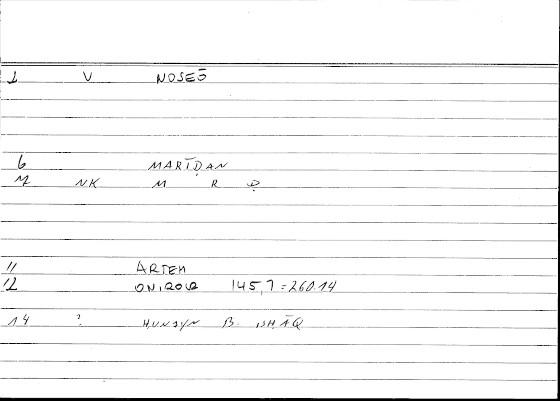 1 V NOSEŌ
6 MARĪḌAN
M NK M R Ḍ
11 ARTEM
12 ONIROCR 145,7 = 260.14
14 ? ḤUNAYN B. ISḤĀQ